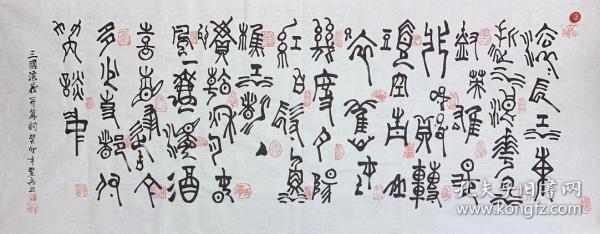 滾滾長江東
逝水浪花淘
盡英雄是
非成敗轉
頭空青山
依舊在
幾度夕陽
紅白髮漁
樵江渚上
慣看秋月春
風一壺濁酒
喜相逢古今
多少事都付
笑談中
三國演義開篇詞癸卯年
3
孔夫子旧书网
www.kongfz.com